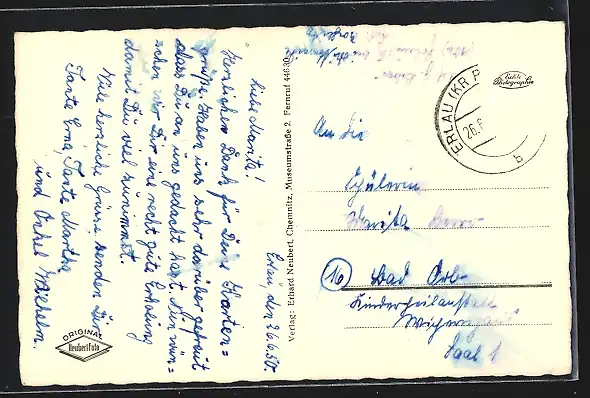 Erlau, den 26.6.50.
Liebe Marita!
Herzlichen Dank für Deine Karten=
grüße. Haben uns sehr darüber gefreut
dass Du an uns gedacht hast. Nun wün=
schen wir Dir eine recht gute Erholung
damit Du viel zunimmst.
Viele herzliche Grüsse senden Dir
Tante Erna, Tante Martha
und Onkel Wilhelm.
ORIGINAL
Neubert Foto
Verlag: Erhard Neubert, Chemnitz, Museumstraße 2. Fernruf 44630
ERLAU (KR
26.6
b
Echte
Photographie
An die
Schülerin
Marita
(16) Bad Orb
Kinderheilanstalt
Saal 1